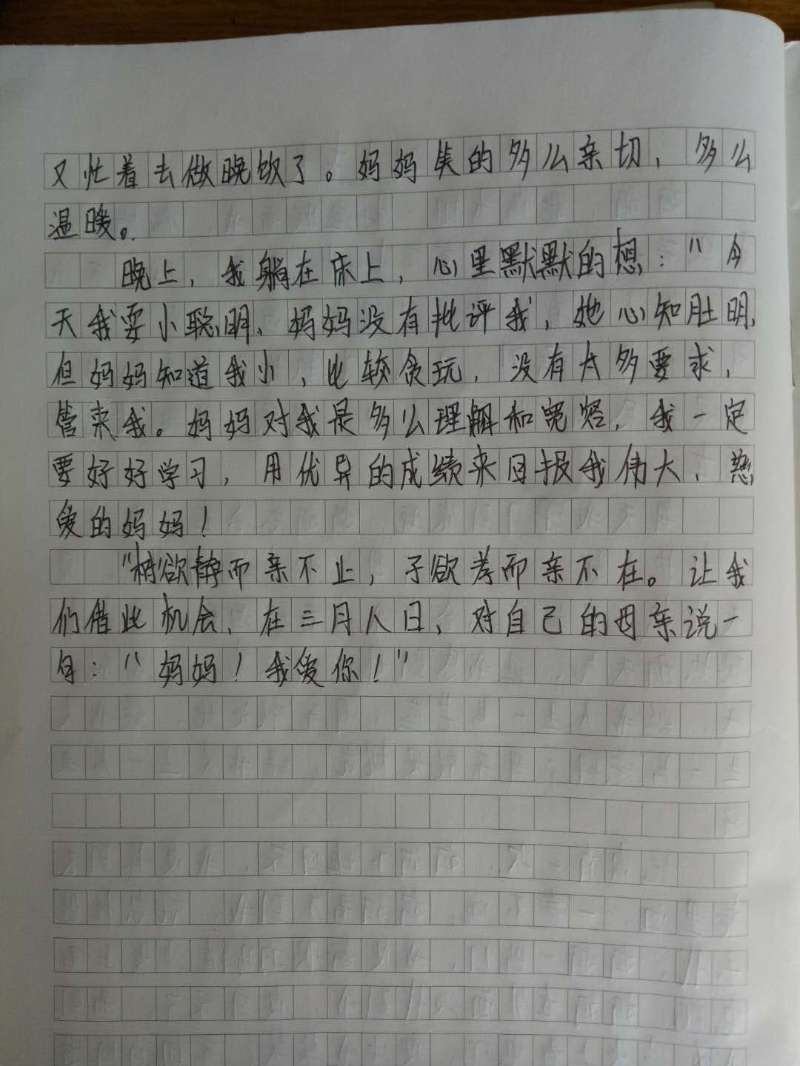 又忙着去做晚饭了。妈妈笑的多么亲切，多么
温暖。
晚上，我躺在床上，心里默默的想："今
天我耍小聪明，妈妈没有批评我，她心知肚明，
但妈妈知道我小，比较贪玩，没有太多要求，
管束我。妈妈对我是多么理解和宽容，我一定
要好好学习，用优异的成绩来回报我伟大、慈
爱的妈妈！
"树欲静而亲不止，子欲孝而亲不在。让我
们借此机会，在三月八日，对自己的母亲说一
句："妈妈！我爱你！"